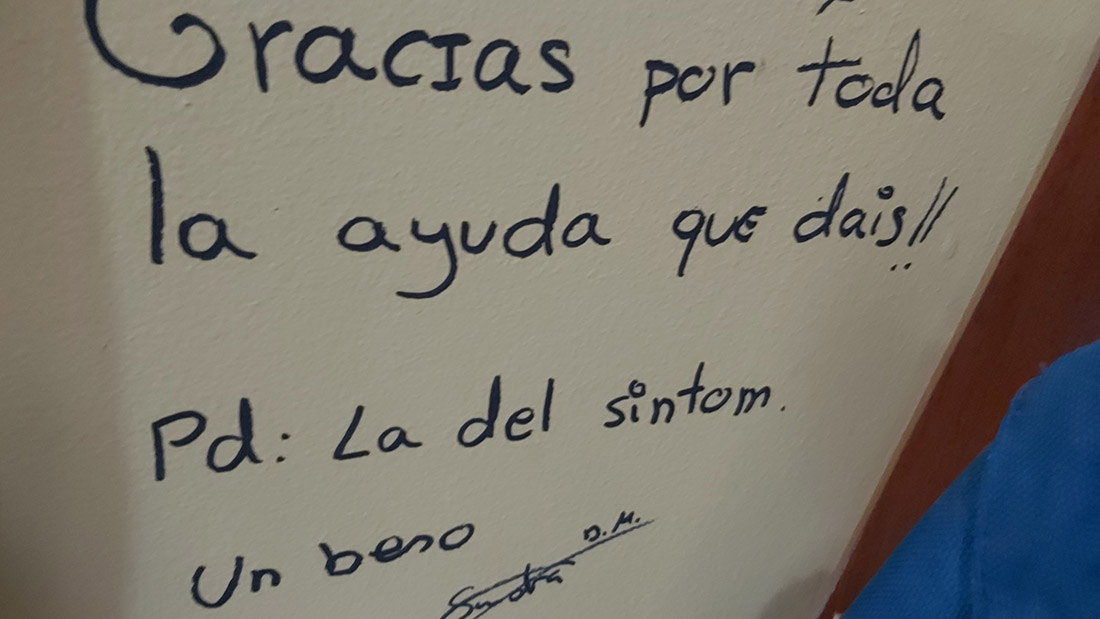 Gracias por toda
la ayuda que dais!!
Pd: La del sintom.
Un beso
Sandra D.M.